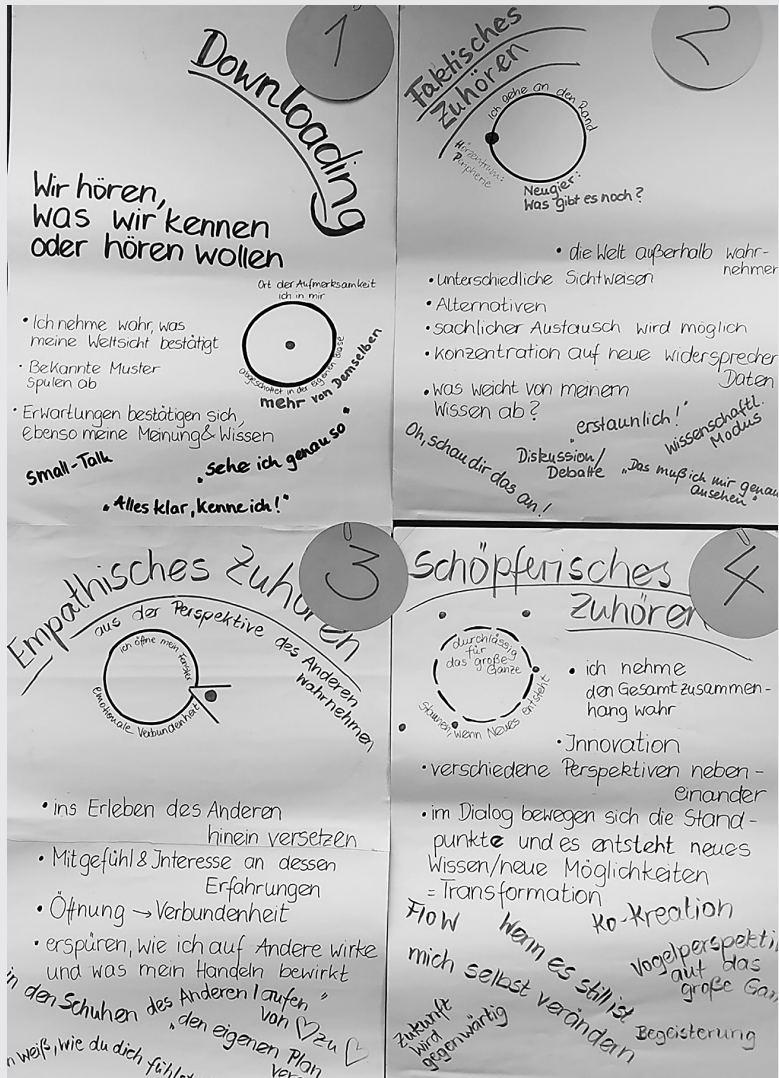 1
Downloading
Wir hören,
was wir kennen
oder hören wollen
Ort der Aufmerksamkeit
ich in mir
abgeschottet in der eigenen Blase
mehr von Demselben
• Ich nehme wahr, was
meine Weltsicht bestätigt
• Bekannte Muster
spulen ab
• Erwartungen bestätigen sich,
ebenso meine Meinung & Wissen
Small-Talk
„sehe ich genau so"
„Alles klar, kenne ich!"
2
Faktisches
Zuhören
ich gehe an den Rand
Hörzentrum:
Peripherie
Neugier:
Was gibt es noch?
• die Welt außerhalb wahr-
nehmen
• unterschiedliche Sichtweisen
• Alternativen
• sachlicher Austausch wird möglich
• Konzentration auf neue widersprecher
Daten
• was weicht von meinem
Wissen ab?
„erstaunlich!"
wissenschaftl.
Modus
Oh, schau dir das an!
Diskussion/
Debatte
„Das muß ich mir genau
ansehen"
3
Empathisches Zuhören
aus der Perspektive des Anderen
wahrnehmen
ich öffne mein Fenster
emotionale Verbundenheit
• ins Erleben des Anderen
hinein versetzen
• Mitgefühl & Interesse an dessen
Erfahrungen
• Öffnung → Verbundenheit
• erspüren, wie ich auf Andere wirke
und was mein Handeln bewirkt
in den Schuhen des Anderen laufen"
von ♡ zu ♡
„den eigenen Plan
weiß, wie du dich fühlst
4
Schöpferisches
Zuhören
durchlässig
für
das große
Ganze
Staunen, wenn Neues entsteht
• ich nehme
den Gesamtzusammen-
hang wahr
• Innovation
• verschiedene Perspektiven neben-
einander
• im Dialog bewegen sich die Stand-
punkte und es entsteht neues
Wissen/neue Möglichkeiten
= Transformation
Flow
Wenn es still ist
Ko-Kreation
mich selbst verändern
Vogelperspekti
auf das
große Gan
Zukunft
wird
gegenwärtig
Begeisterung